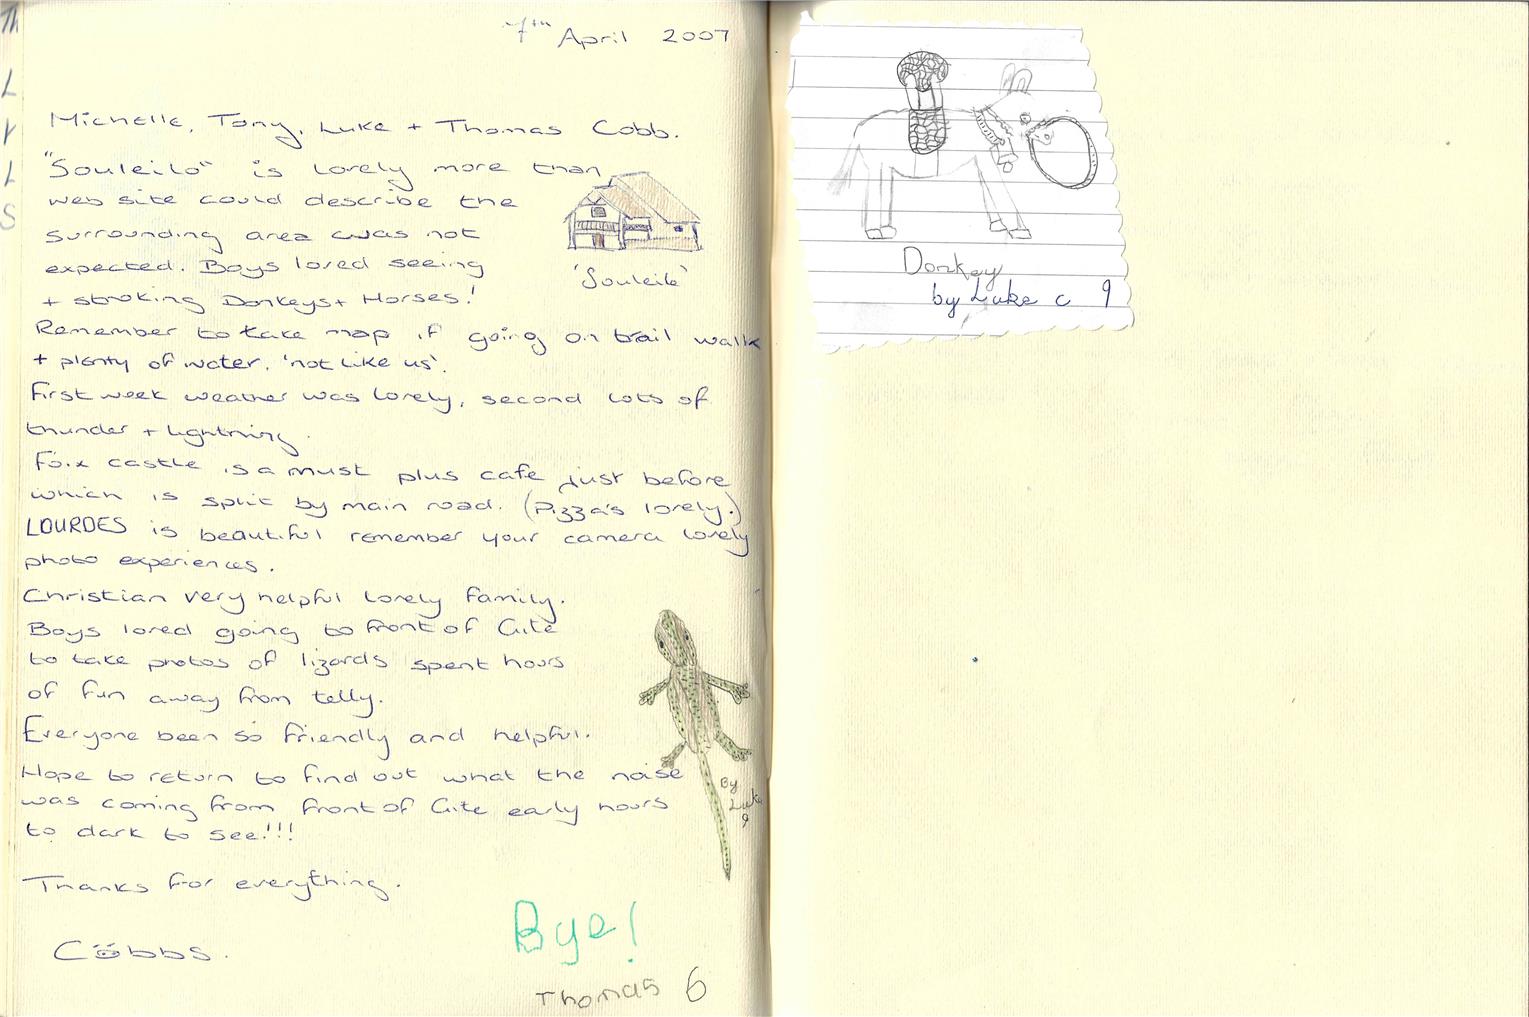 7th April 2007
Michelle, Tony, Luke + Thomas Cobb.
"Souleilo" is lovely more than
web site could describe the
surrounding area was not
expected. Boys loved seeing
+ stroking Donkeys + Horses!
'Souleilo'
Remember to take map if going on trail walk
+ plenty of water, 'not like us'.
First week weather was lovely, second lots of
thunder + lightning.
Foix castle is a must plus cafe just before
which is split by main road. (Pizza's lovely.)
LOURDES is beautiful remember your camera lovely
photo experiences.
Christian very helpful lovely family.
Boys loved going to front of Gite
to take photos of lizards spent hours
of fun away from telly.
Everyone been so friendly and helpful.
Hope to return to find out what the noise
was coming from front of Gite early hours
to dark to see!!!
By
Luke
9
Thanks for everything.
Cobbs.
Bye!
Thomas 6
Donkey
by Luke c 9